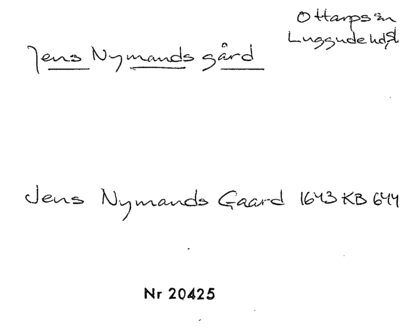 Ottarps sn
Luggude hd
Jens Nymands gård
Jens Nymands Gaard 1643 KB 644
Nr 20425